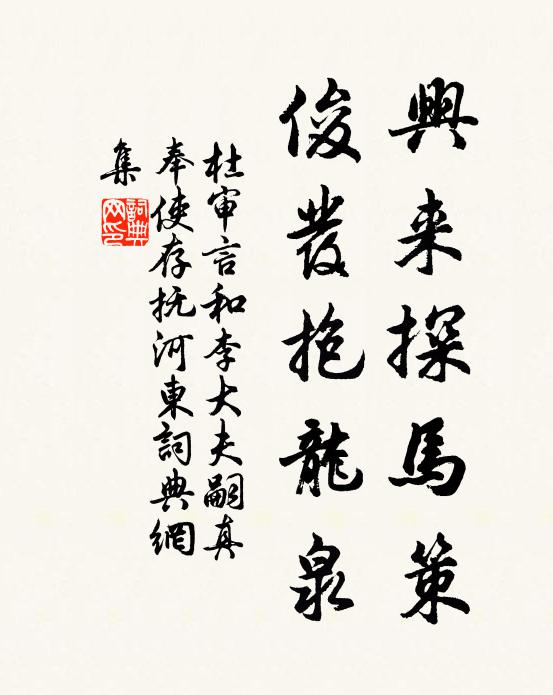 興来探馬策
俊發抱龍泉
杜审言和李大夫嗣真
奉使存抚河東詞典網
集
詞典
网印